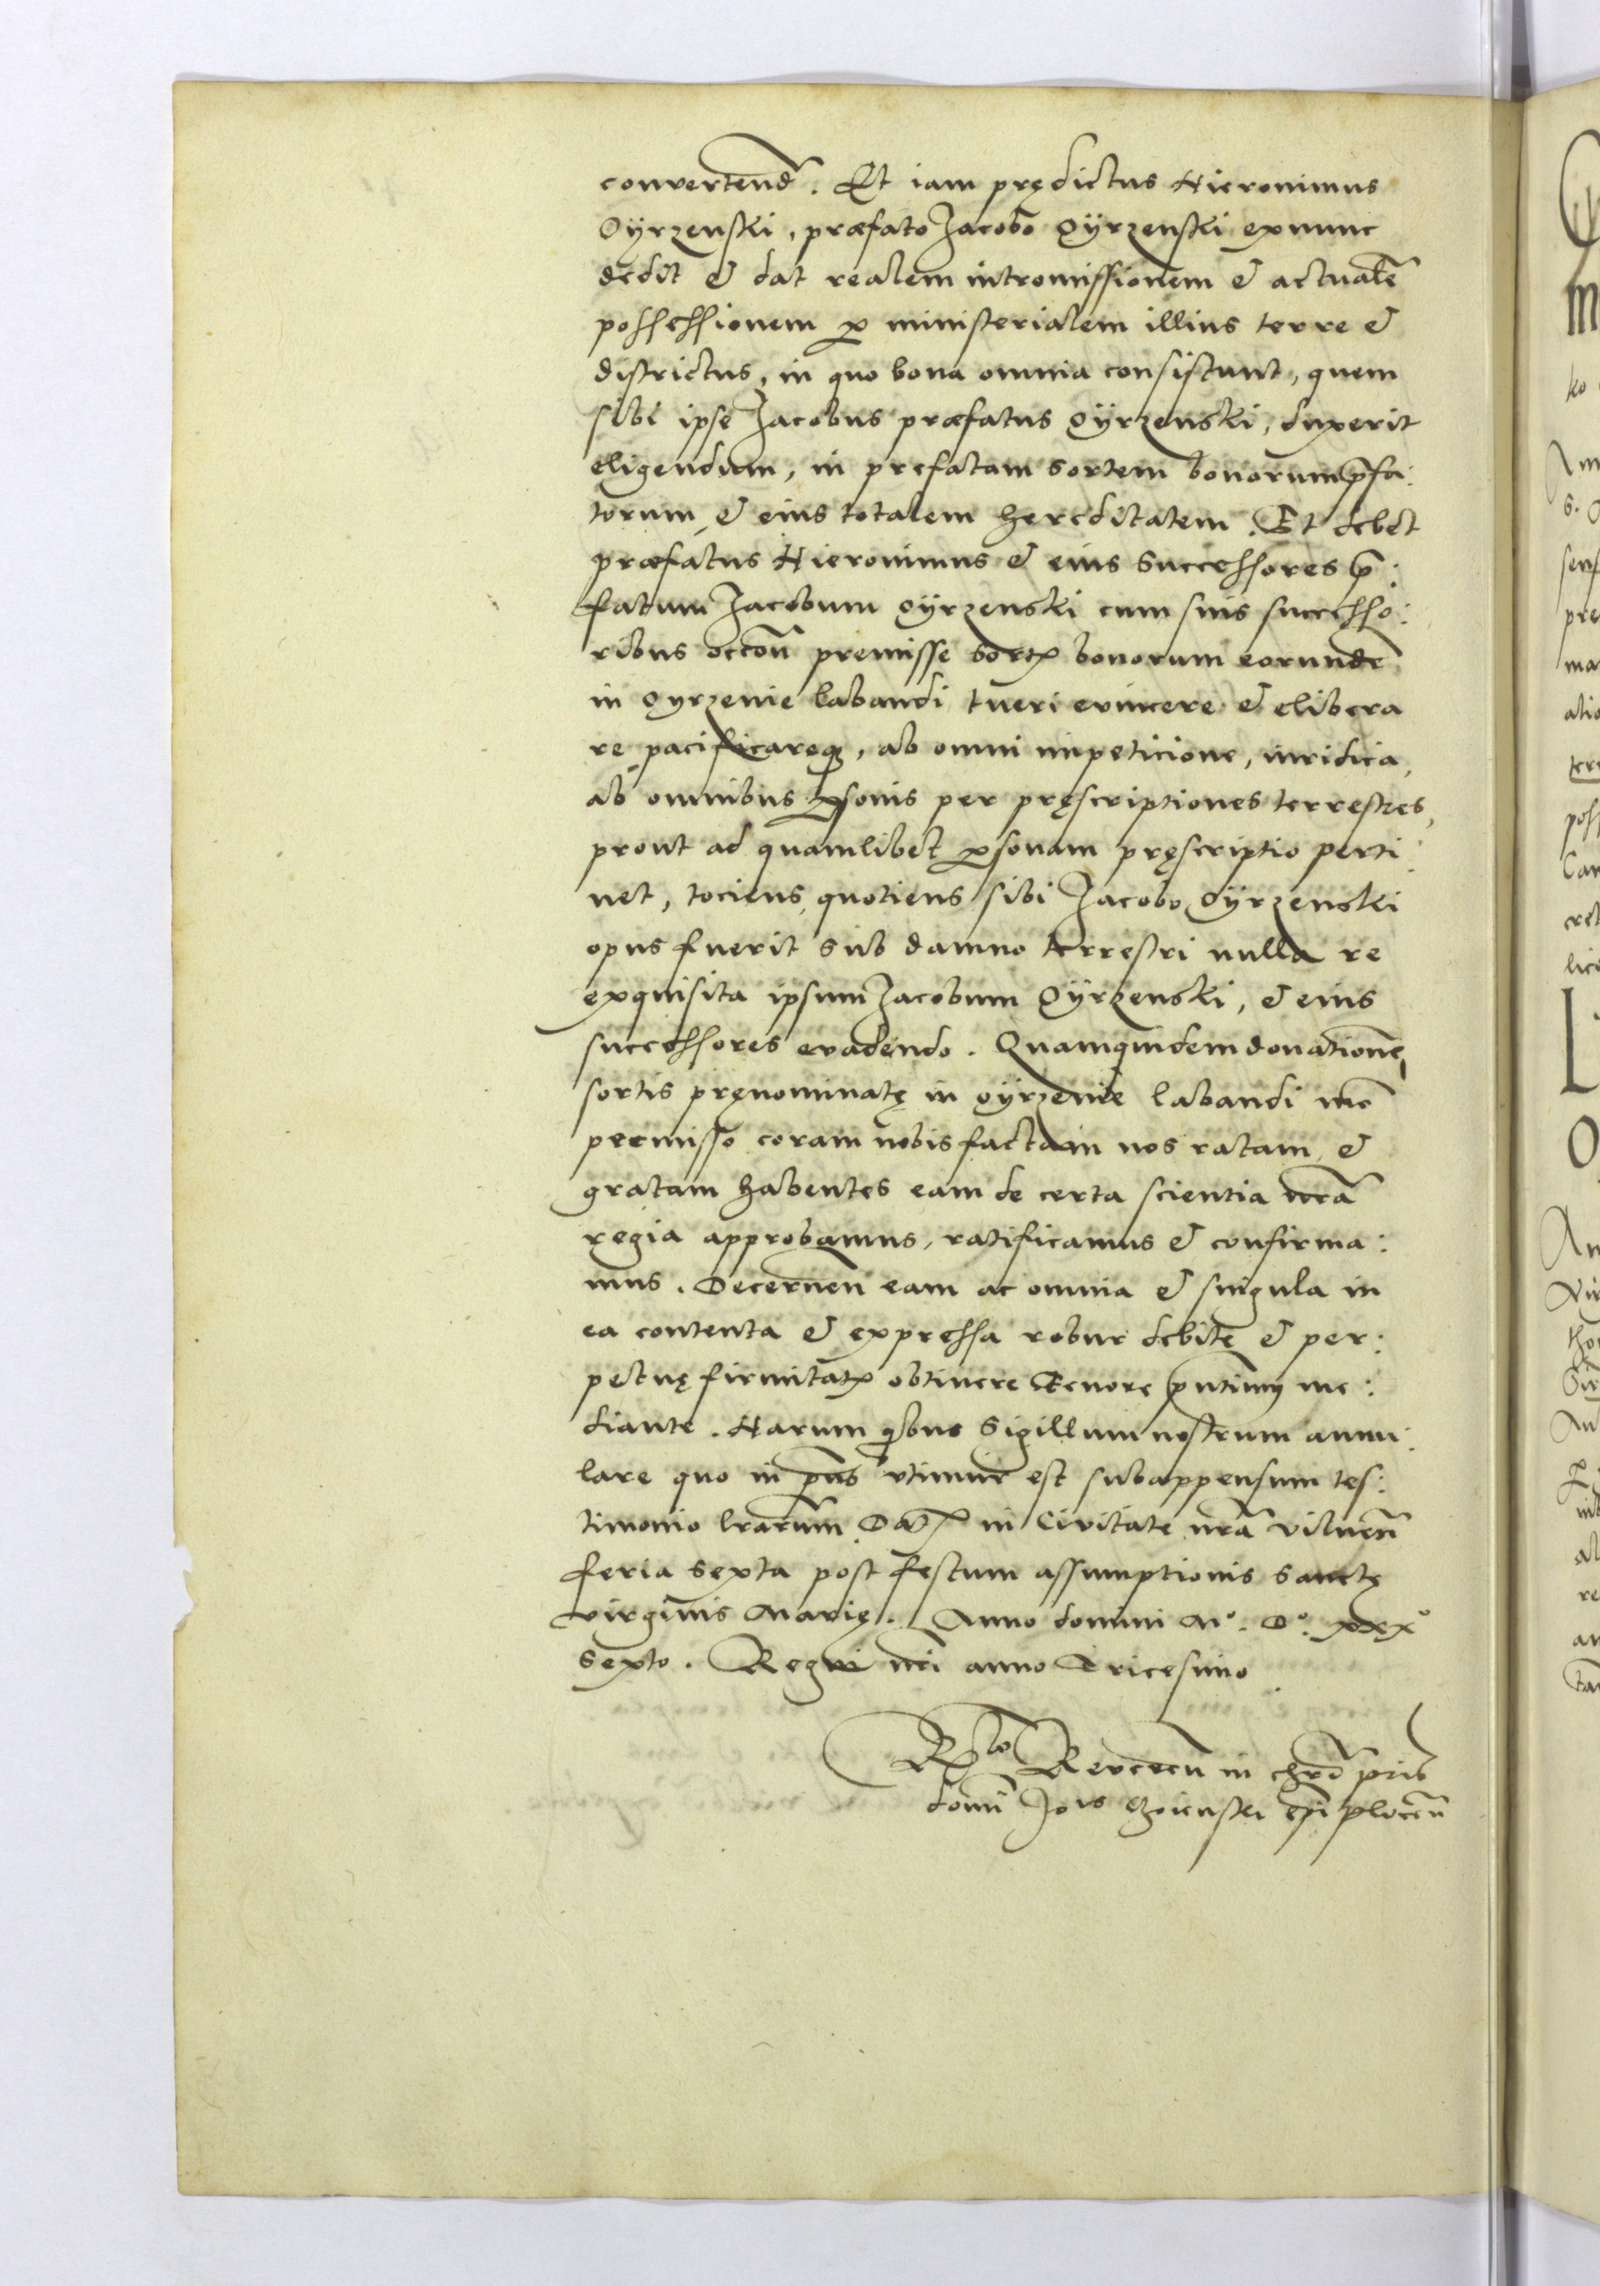 convertend. Et iam prędictus Hieronimus
Oÿrzenski, præfato Jacobo Oÿrzenski exnunc
dedit & dat realem intromissionem & actualē
possessionem p ministerialem illius terre &
districtus, in quo bona omnia consistunt, quem
sibi ipse Jacobus præfatus Oÿrzenski, duxerit
eligendum, in prefatam sortem bonorum p̄fa:
torum & eius totalem hereditatem. Et debet
præfatus Hieronimus & eius Successores p̄:
fatum Jacobum Oÿrzenski cum suis successo:
ribus occōn premisse sortꝭ bonorum eorundē
in Oyrzenie labandi tueri evincere & elibera
re pacificareqꝫ, ab omni impeticione, iuridica,
ab omnibus psonis per pręscriptiones terrestres,
prout ad quamlibet psonam pręscriptio perti:
net, tociens, quotiens sibi Jacobo Oÿrzenski
opus fuerit sub damno terrestri nulla re
exquisita ipsum Jacobum Oÿrzenski, & eius
successores evadendo. Quamquidem donationē
sortis pręnominatę in Oÿrzenie labandi mō
permisso coram nobis factam nos ratam &
gratam habentes eam de certa scientia nrā
regia approbamus, ratificamus & confirma:
mus. Decernen̄ eam ac omnia & singula in
ea contenta & expressa robur debite & per:
petuę firmitatꝭ obtinere Tenore p̄ntium me:
diante. Harum qbus Sigillum nostrum annu:
lare quo in p̄ns utimur est subappensum tes:
timonio lrarum. Datꝭ in Civitate nrā vilnen̄
feria sexta post festum assumptionis Sanctę
virginis Marię. Anno domini Mº. Dº. xxxº
Sexto. Regni nri anno Tricesimo.
R̄lo Reveren̄ in chrō pris
domī Jois Choienski epī plocen̄